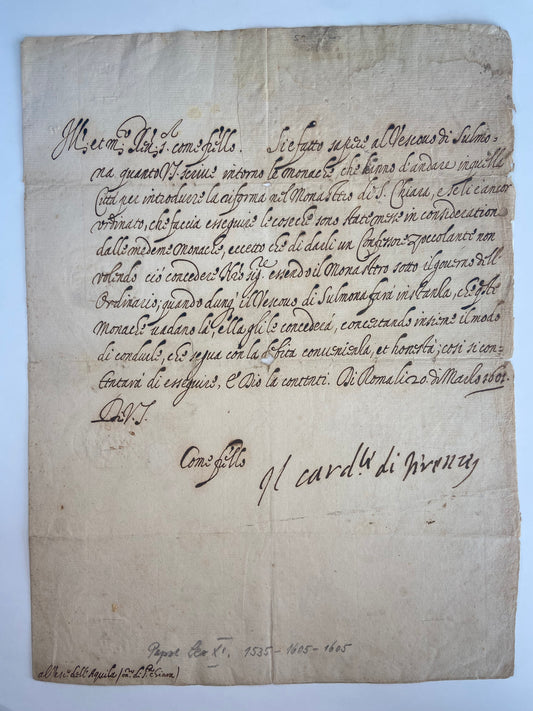 Ill.re et m.to R.do S.r come fr̄ello. Si è fatto sapere al Vescovo di Sulmo-
na quanto V.S. scrive intorno la monache, che hanno d'andare in quella
Città per introdurre la riforma nel Monastro di S. Chiara, e se li è ancor
ordinato, che faccia esseguire le cose che sono state messe in consideration
dalle medeme Monache, eccetto che di darli un Confessore zoccolante non
volendo ciò concedere Nro Sig.re essendo il Monastro sotto il governo dell'
Ordinario; quando dunq. il Vescovo di Sulmona farà instanza, che q.ste
Monache vadano là, ella gli le concederà, concertando insieme il modo
di condurle, che segua con la debita convenienza, et honestà; così si con-
tentarà di esseguire, e Dio la contenti. Di Roma li 20. di Marzo 1601.
Di V.S.
Come fr̄ello
Il card.le di firenze
Papst Leo XI. 1535 - 1605 - 1605
al Vesc.o dell'Aquila